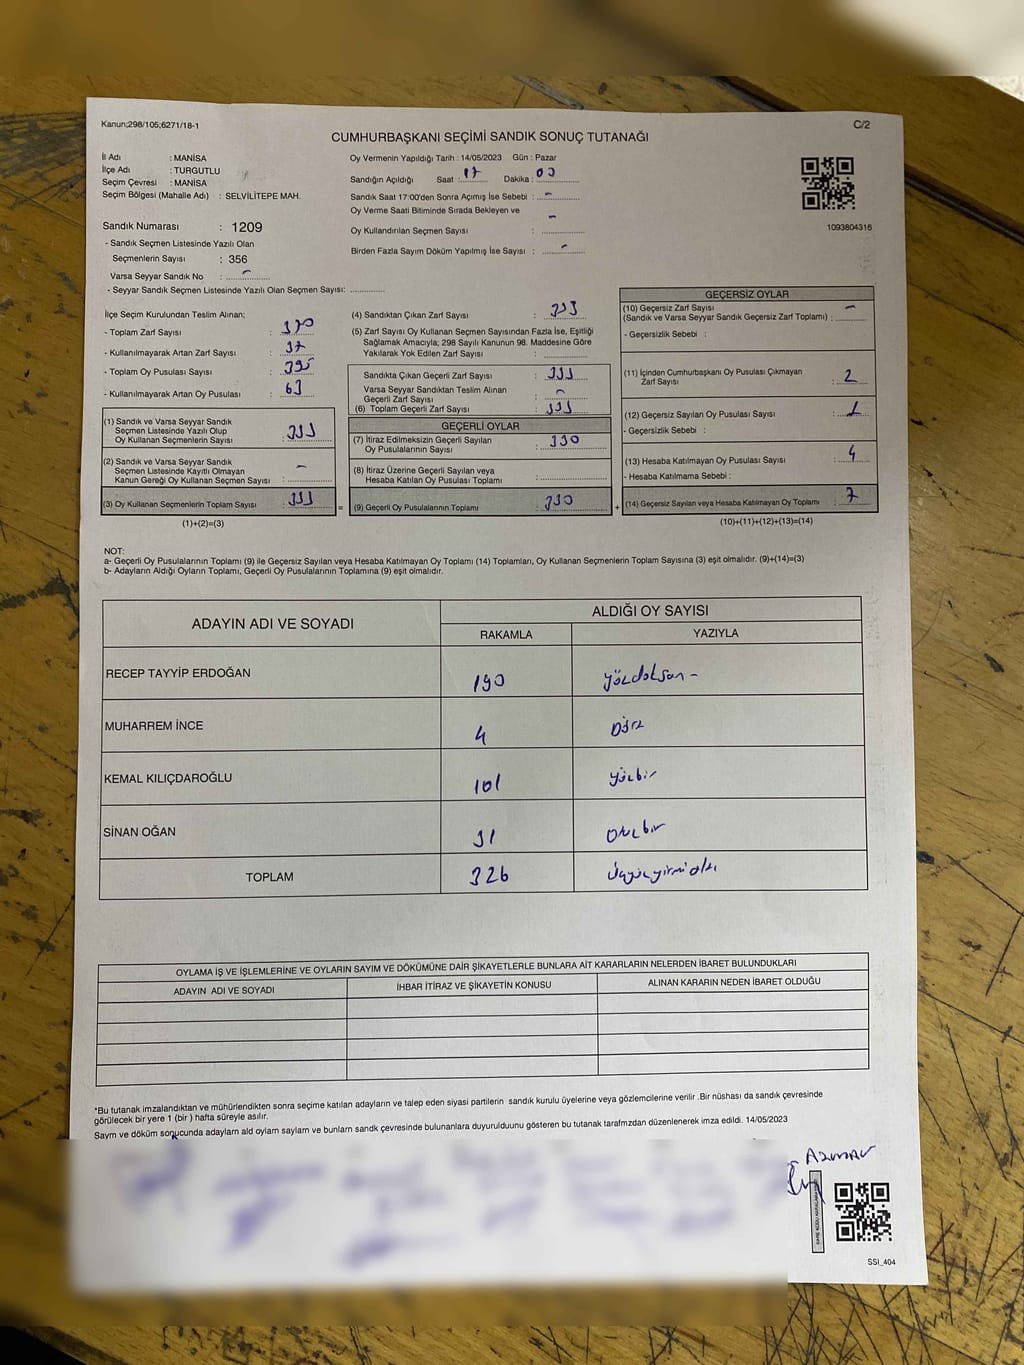 Kanun;298/105;6271/18-1
C/2
CUMHURBAŞKANI SEÇİMİ SANDIK SONUÇ TUTANAĞI
İl Adı : MANİSA
İlçe Adı : TURGUTLU
Seçim Çevresi : MANİSA
Seçim Bölgesi (Mahalle Adı) : SELVİLİTEPE MAH.
Sandık Numarası : 1209
- Sandık Seçmen Listesinde Yazılı Olan
Seçmenlerin Sayısı : 356
Varsa Seyyar Sandık No : -
- Seyyar Sandık Seçmen Listesinde Yazılı Olan Seçmen Sayısı: ............
Oy Vermenin Yapıldığı Tarih : 14/05/2023 Gün : Pazar
Sandığın Açıldığı Saat : 17 Dakika : 00
Sandık Saat 17:00'den Sonra Açımış İse Sebebi : -
Oy Verme Saati Bitiminde Sırada Bekleyen ve -
Oy Kullandırılan Seçmen Sayısı :
Birden Fazla Sayım Döküm Yapılmış İse Sayısı : -
1093804316
İlçe Seçim Kurulundan Teslim Alınan;
- Toplam Zarf Sayısı : 370
- Kullanılmayarak Artan Zarf Sayısı : 37
- Toplam Oy Pusulası Sayısı : 395
- Kullanılmayarak Artan Oy Pusulası : 63
(1) Sandık ve Varsa Seyyar Sandık
Seçmen Listesinde Yazılı Olup
Oy Kullanan Seçmenlerin Sayısı : 333
(2) Sandık ve Varsa Seyyar Sandık
Seçmen Listesinde Kayıtlı Olmayan
Kanun Gereği Oy Kullanan Seçmen Sayısı : -
(3) Oy Kullanan Seçmenlerin Toplam Sayısı : 333
(1)+(2)=(3)
(4) Sandıktan Çıkan Zarf Sayısı : 333
(5) Zarf Sayısı Oy Kullanan Seçmen Sayısından Fazla İse, Eşitliği
Sağlamak Amacıyla; 298 Sayılı Kanunun 98. Maddesine Göre
Yakılarak Yok Edilen Zarf Sayısı :
Sandıkta Çıkan Geçerli Zarf Sayısı : 333
Varsa Seyyar Sandıktan Teslim Alınan
Geçerli Zarf Sayısı : -
(6) Toplam Geçerli Zarf Sayısı : 333
GEÇERLİ OYLAR
(7) İtiraz Edilmeksizin Geçerli Sayılan
Oy Pusulalarının Sayısı : 330
(8) İtiraz Üzerine Geçerli Sayılan veya
Hesaba Katılan Oy Pusulası Toplamı :
= (9) Geçerli Oy Pusulalarının Toplamı : 330 +
GEÇERSİZ OYLAR
(10) Geçersiz Zarf Sayısı
(Sandık ve Varsa Seyyar Sandık Geçersiz Zarf Toplamı) : -
- Geçersizlik Sebebi :
(11) İçinden Cumhurbaşkanı Oy Pusulası Çıkmayan
Zarf Sayısı : 2
(12) Geçersiz Sayılan Oy Pusulası Sayısı : 1
- Geçersizlik Sebebi :
(13) Hesaba Katılmayan Oy Pusulası Sayısı : 4
- Hesaba Katılmama Sebebi :
(14) Geçersiz Sayılan veya Hesaba Katılmayan Oy Toplamı : 7
(10)+(11)+(12)+(13)=(14)
NOT:
a- Geçerli Oy Pusulalarının Toplamı (9) ile Geçersiz Sayılan veya Hesaba Katılmayan Oy Toplamı (14) Toplamları, Oy Kullanan Seçmenlerin Toplam Sayısına (3) eşit olmalıdır. (9)+(14)=(3)
b- Adayların Aldığı Oyların Toplamı, Geçerli Oy Pusulalarının Toplamına (9) eşit olmalıdır.
ADAYIN ADI VE SOYADI ALDIĞI OY SAYISI
RAKAMLA YAZIYLA
RECEP TAYYİP ERDOĞAN 190 Yüzdoksan -
MUHARREM İNCE 4 Dört
KEMAL KILIÇDAROĞLU 101 Yüzbir
SİNAN OĞAN 31 Otuzbir
TOPLAM 326 Üçyüzyirmialtı
OYLAMA İŞ VE İŞLEMLERİNE VE OYLARIN SAYIM VE DÖKÜMÜNE DAİR ŞİKAYETLERLE BUNLARA AİT KARARLARIN NELERDEN İBARET BULUNDUKLARI
ADAYIN ADI VE SOYADI İHBAR İTİRAZ VE ŞİKAYETİN KONUSU ALINAN KARARIN NEDEN İBARET OLDUĞU
*Bu tutanak imzalandıktan ve mühürlendikten sonra seçime katılan adayların ve talep eden siyasi partilerin sandık kurulu üyelerine veya gözlemcilerine verilir .Bir nüshası da sandık çevresinde
görülecek bir yere 1 (bir ) hafta süreyle asılır.
Saym ve döküm sonucunda adayların ald oylarn saylarn ve bunlarn sandk çevresinde bulunanlara duyurulduunu gösteren bu tutanak tarafmzdan düzenlenerek imza edildi. 14/05/2023
SSI_404